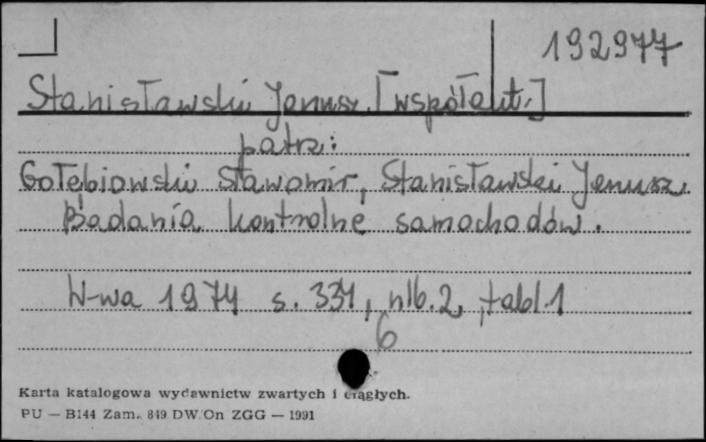 192977
Stanisławski Janusz. [współaut.]
patrz:
Gołębiowski Sławomir, Stanisławski Janusz.
Badania kontrolne samochodów.
W-wa 1974 s. 331, nlb. 2, tabl. 1
6
Karta katalogowa wydawnictw zwartych i ciągłych.
PU — B144 Zam. 849 DW/On ZGG — 1991